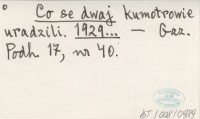 Co se dwaj kumotrowie
uradzili. 1929... — Gaz.
Podh. 17, nr 40.